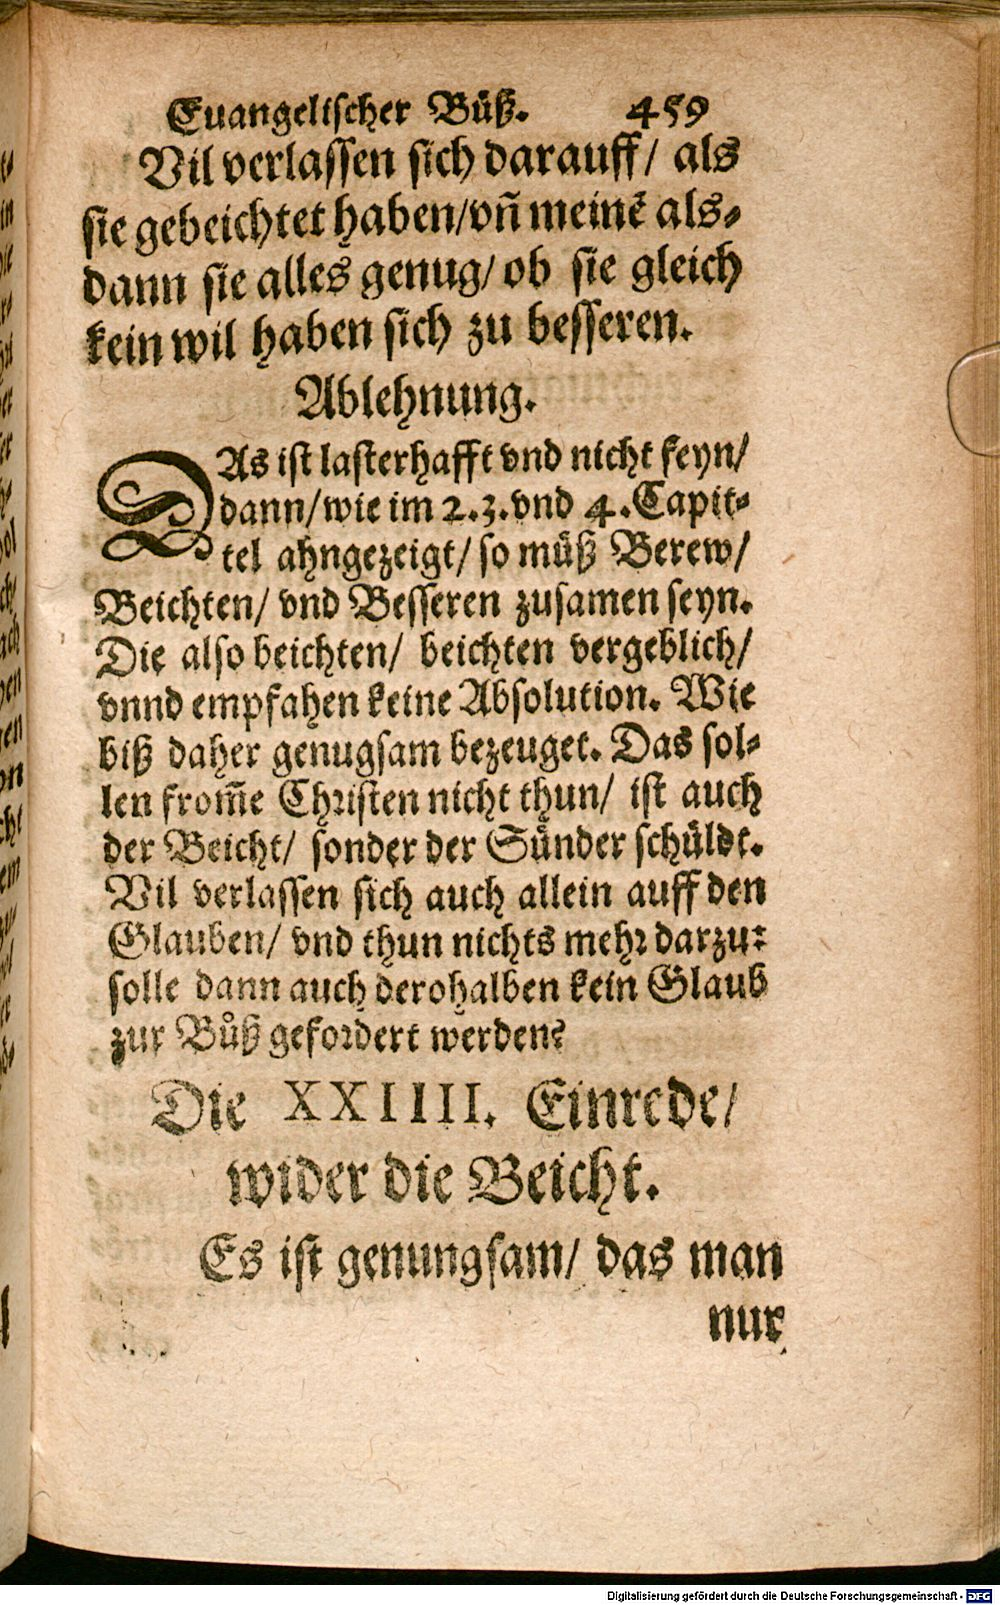 Euangelischer Büß. 459
Vil verlassen sich darauff/ als
sie gebeichtet haben/vñ meinẽ als-
dann sie alles genug/ ob sie gleich
kein wil haben sich zu besseren.
Ablehnung.
DAs ist lasterhafft vnd nicht feyn/
dann/wie im 2.3.vnd 4.Capit-
tel ahngezeigt/ so müß Berew/
Beichten/ vnd Besseren zusamen seyn.
Die also beichten/ beichten vergeblich/
vnnd empfahen keine Absolution. Wie
biß daher genugsam bezeuget. Das sol-
len from̃e Christen nicht thun/ ist auch
der Beicht/ sonder der Sünder schüldt.
Vil verlassen sich auch allein auff den
Glauben/ vnd thun nichts mehr darzu:
solle dann auch derohalben kein Glaub
zur Bůß gefordert werden?
Die XXIIII. Einrede/
wider die Beicht.
Es ist genungsam/ das man
nur
Digitalisierung gefördert durch die Deutsche Forschungsgemeinschaft - DFG